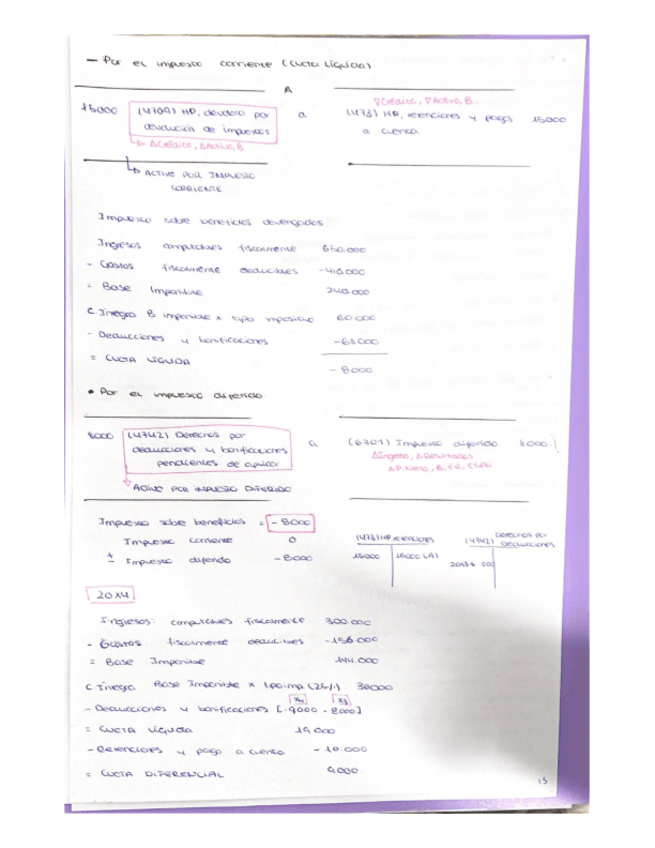 - Por el impuesto corriente (cuota líquida)
A
15000 (4709) HP, deudora por devolución de impuestos
↳ ΔCrédito, ΔActivo, B
a
∇Crédito, ∇Activo, B.
(473) HP, retenciones y pagos a cuenta 15000
↳ ACTIVO POR IMPUESTO CORRIENTE
Impuesto sobre beneficios devengados
Ingresos computables fiscalmente 650.000
- Gastos fiscalmente deducibles -410.000
= Base Imponible 240.000
C. Íntegra B imponible x tipo impositivo 60.000
- Deducciones y bonificaciones -68000
= CUOTA LÍQUIDA - 8000
• Por el impuesto diferido
8000 (4742) Derechos por deducciones y bonificaciones pendientes de aplicar
a (6301) Impuesto diferido 8000
ΔIngreso, ΔResultados
ΔP.Neto, B,
↳ ACTIVO POR IMPUESTO DIFERIDO
Impuesto sobre beneficios = - 8000
Impuesto corriente 0
± Impuesto diferido - 8000
(473) HP retenciones
15000 15000 (A)
(4742) Derechos por Deducciones
20X4
Ingresos computables fiscalmente 300.000
- Gastos fiscalmente deducibles -156.000
= Base Imponible 144.000
C. Íntegra Base Imponible x tipo imp. (25%) 36000
X4 X3
- Deducciones y bonificaciones [-9000 - 8000]
= CUOTA LÍQUIDA 19.000
- Retenciones y pago a cuenta - 10.000
= CUOTA DIFERENCIAL 9000.
15